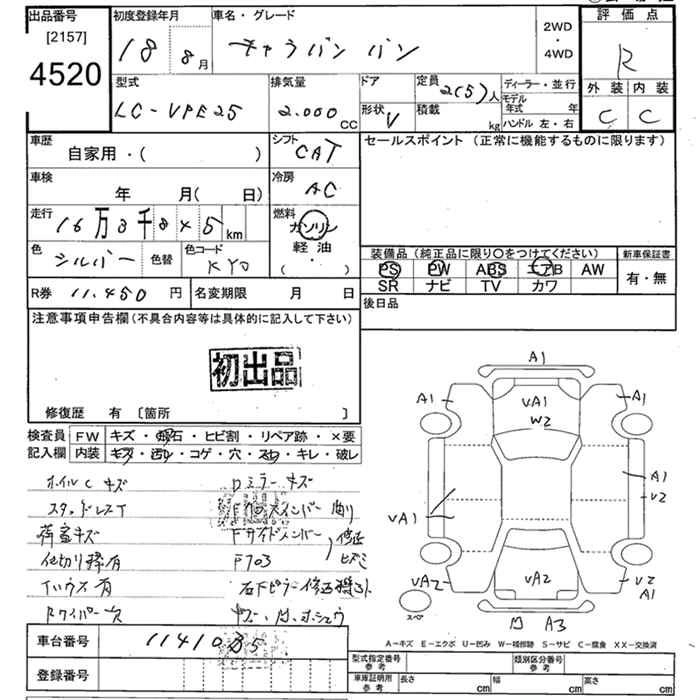 出品番号
[2157]
4520
初度登録年月
18 8月
車名・グレード
キャラバン バン
2WD
・
4WD
評価点
R
外装 内装
C C
型式
LC-VPE25
排気量
2.000 CC
ドア
形状 V
定員 2(5)人
積載 kg
ディーラー・並行
モデル年式 年
ハンドル 左・右
車歴
自家用・( )
シフト
CAT
セールスポイント（正常に機能するものに限ります）
車検
年 月( 日)
冷房
AC
走行
16万3千8 4 5 km
燃料
ガソリン
軽油
・
( )
色
シルバー
色替
色コード
KY0
装備品（純正品に限り○をつけてください）
PS PW ABS エアB AW
SR ナビ TV カワ
新車保証書
有・無
R券 11.450 円
名変期限 月 日
後日品
注意事項申告欄（不具合内容等は具体的に記入して下さい）
初出品
修復歴 有〔箇所 〕
検査員記入欄
FW キズ・飛石・ヒビ割・リペア跡・×要
内装 キズ・汚レ・コゲ・穴・スレ・キレ・破レ
ホイルCキズ
スタッドレスT
荷室キズ
仕切り棒有
Rワイパー欠
Dミラーキズ
Fサイドメンバー
修正
ヒズミ
A1
A1
VA1
W2
A1
A1
V2
VA1
VA2
VA2
V2
A1
スペア
A3
A-キズ E-エクボ U-凹み W-補修跡 S-サビ C-腐食 XX-交換済
車台番号
登録番号
型式指定番号
参考
類別区分番号
参考
車庫証明用
参考
長さ cm
幅 cm
高さ cm